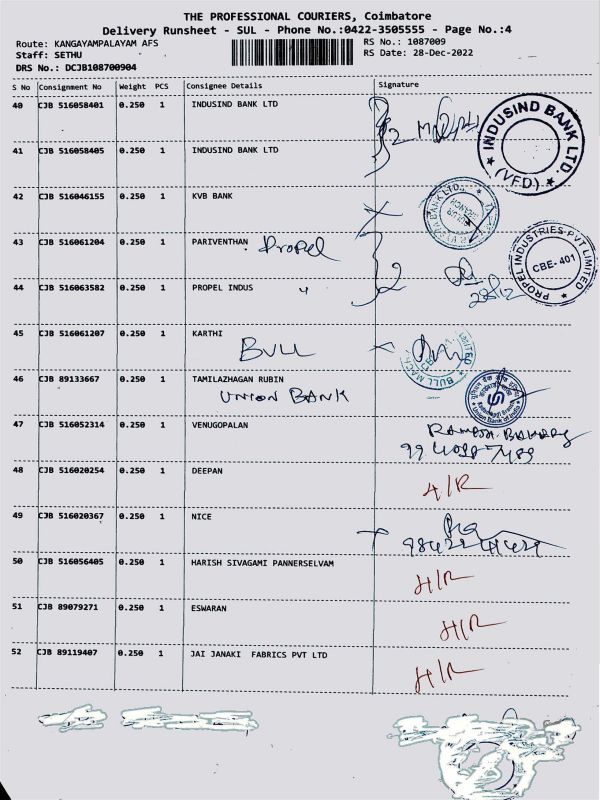 THE PROFESSIONAL COURIERS, Coimbatore
Delivery Runsheet - SUL - Phone No.:0422-3505555 - Page No.:4
Route: KANGAYAMPALAYAM AFS
RS No.: 1087009
Staff: SETHU
RS Date: 28-Dec-2022
DRS No.: DCJB108700904
S No Consignment No Weight PCS Consignee Details Signature
40 CJB 516058401 0.250 1 INDUSIND BANK LTD
INDUSIND BANK LTD. (VFD)
41 CJB 516058405 0.250 1 INDUSIND BANK LTD
42 CJB 516046155 0.250 1 KVB BANK
43 CJB 516061204 0.250 1 PARIVENTHAN Propel
PROPEL INDUSTRIES PVT LIMITED CBE-401
44 CJB 516063582 0.250 1 PROPEL INDUS "
28/12
45 CJB 516061207 0.250 1 KARTHI
BULL
46 CJB 89133667 0.250 1 TAMILAZHAGAN RUBIN
UNION BANK
Union Bank of India
47 CJB 516052314 0.250 1 VENUGOPALAN
48 CJB 516020254 0.250 1 DEEPAN
49 CJB 516020367 0.250 1 NICE
50 CJB 516056405 0.250 1 HARISH SIVAGAMI PANNERSELVAM H/R
51 CJB 89079271 0.250 1 ESWARAN H/R
52 CJB 89119407 0.250 1 JAI JANAKI FABRICS PVT LTD H/R